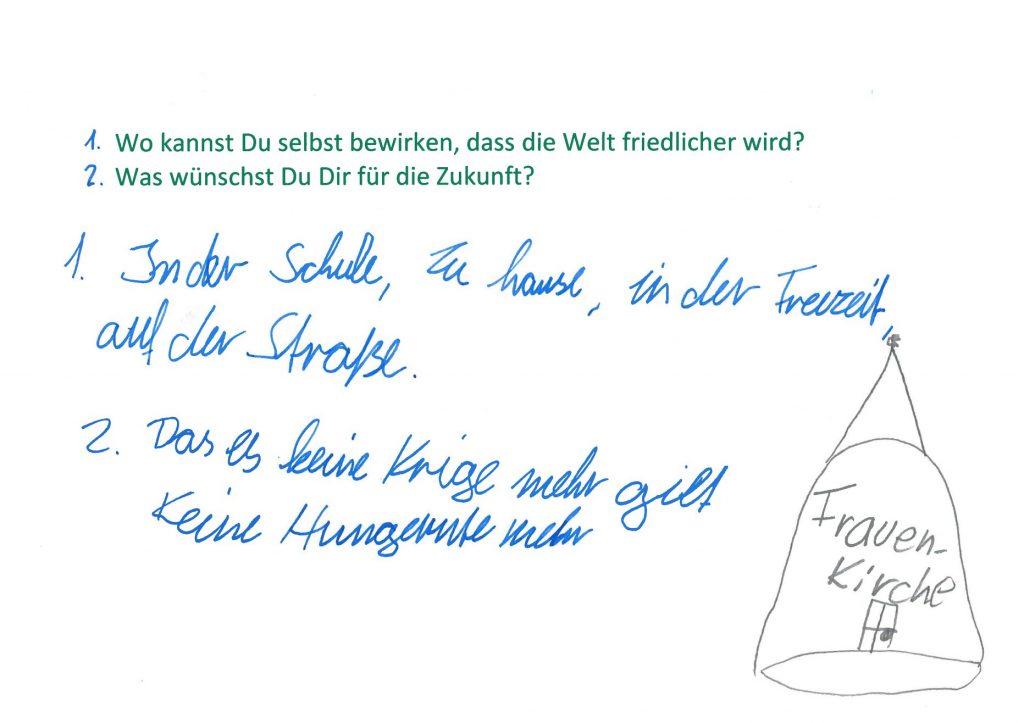 1. Wo kannst Du selbst bewirken, dass die Welt friedlicher wird?
2. Was wünschst Du Dir für die Zukunft?
1. In der Schule, zu hause, in der Freizeit,
auf der Straße.
2. Das es keine Krige mehr gilt
Keine mehr
Frauen-
Kirche